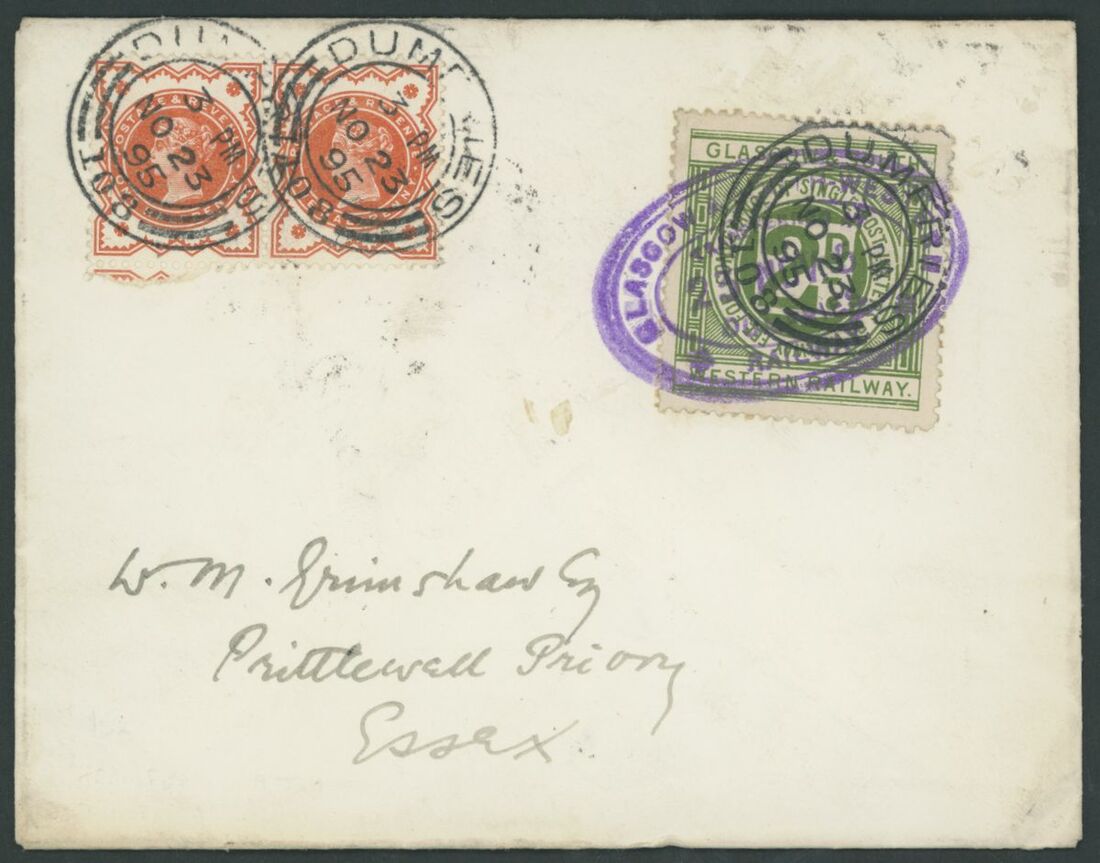 DUMFRIES
3 PM
NO 23
95
108
POSTAGE & REVENUE
DUMFRIES
3 PM
NO 23
95
108
GLASGOW
DUMFRIES
3 PM
NO 23
95
108
GLASGOW
RAILWAY
WESTERN RAILWAY.
W. M. Grimshaw Esq
Prittlewell Priory
Essex